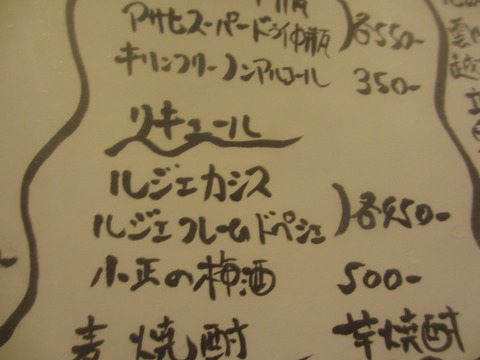 アサヒスーパードライ中瓶 各550-
キリンフリーノンアルコール 350-
リキュール
ルジェカシス
ルジェクレームドペシェ 各450-
小正の梅酒 500-
麦焼酎 芋焼酎